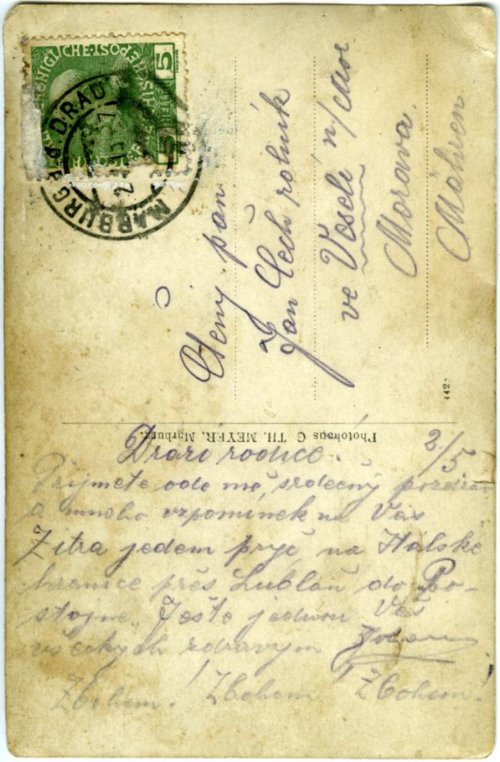 5 KÖNIGLICHE·POST 5
MARBURG DRAU
Ctěný pán
Jan Čech rolník
ve Veselí n/Mor.
Morava.
Mähren
Photohaus C. TH. MEYER, Marburg.
442
Drazí rodiče! 2/5
Přijmete ode mě, srdečný pozdrav
a mnoho vzpomínek na Vás
Zitra jedem pryč na Italske
hranice přes Lublaň do Po-
stojne. Ješte jednou Vás
všeckých zdravým
Zbohem! Zbohem! Zbohem!